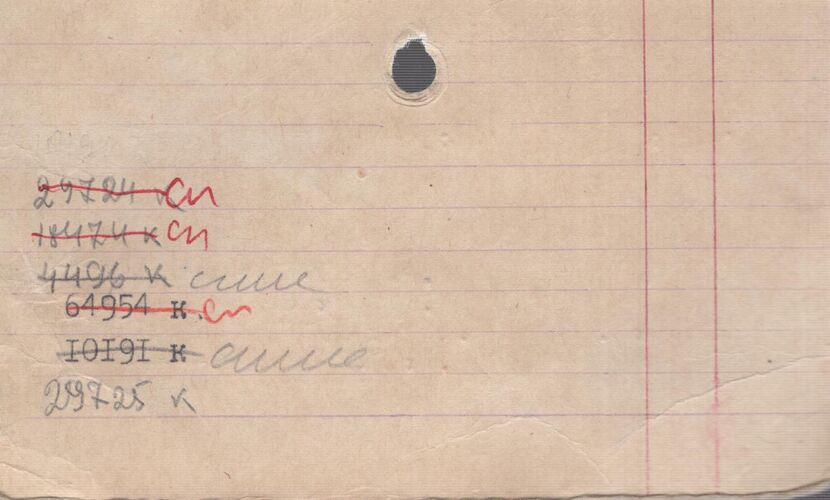 29724 к сп
18474 к сп
4496 к спис
64954 к. сп
I0I9I к спис
29725 к